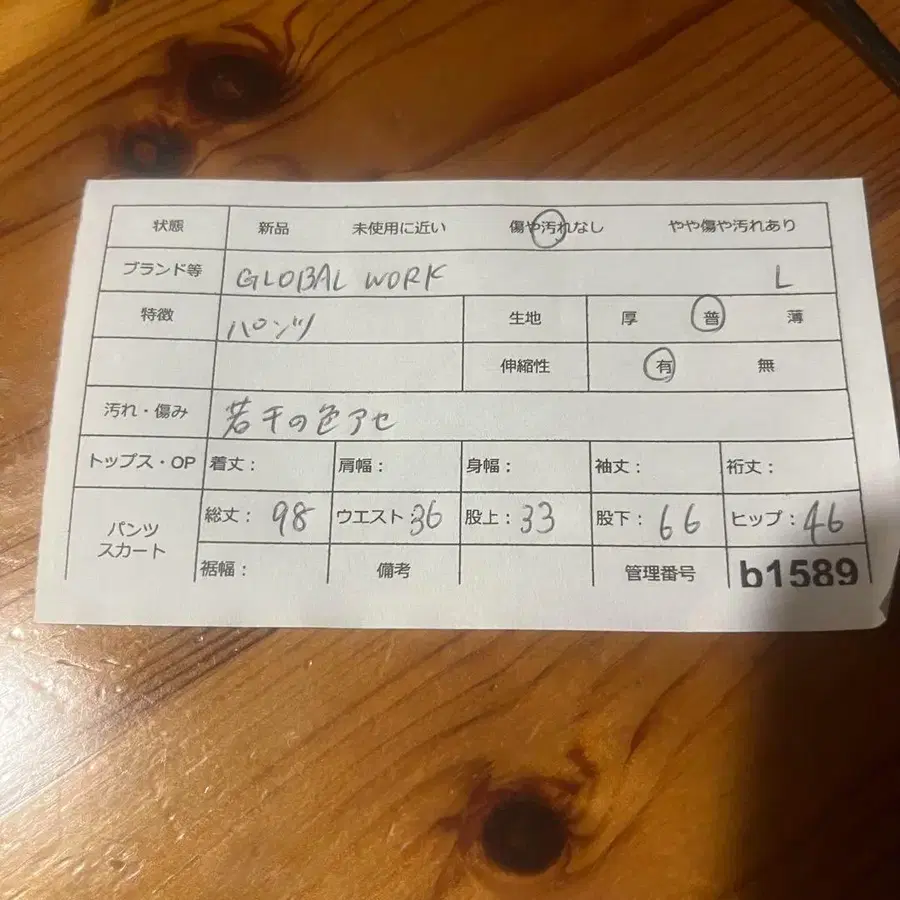 状態 新品 未使用に近い 傷や汚れなし やや傷や汚れあり
ブランド等 GLOBAL WORK L
特徴 パンツ 生地 厚 普 薄
伸縮性 有 無
汚れ・傷み 若干の色アセ
トップス・OP 着丈: 肩幅: 身幅: 袖丈: 裄丈:
パンツ スカート 総丈: 98 ウエスト: 36 股上: 33 股下: 66 ヒップ: 46
裾幅: 備考 管理番号 b1589